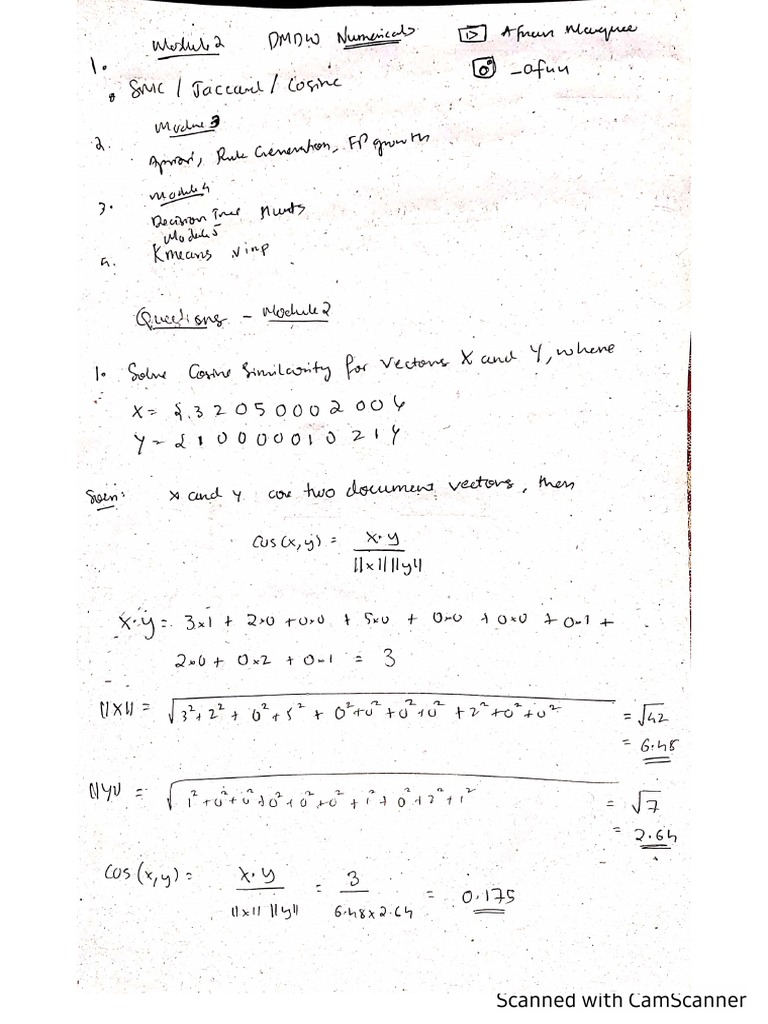 Module 2 DMDW Numericals Afnan Marquee
1. _afnn
SMC / Jaccard / Cosine
Module 3
2. Apriori, Rule Generation, FP growth
3. Module 4
Decision Tree Hunts
Module 5
4. Kmeans vimp
Questions - Module 2
1. Solve Cosine Similarity for vectors X and Y, where
X = { 3 2 0 5 0 0 0 2 0 0 }
Y = { 1 0 0 0 0 0 1 0 2 1 }
Soln: x and y are two document vectors, then
cos(x,y) = x·y
||x|| ||y||
x·y = 3x1 + 2x0 + 0x0 + 5x0 + 0x0 + 0x0 + 0x1 +
2x0 + 0x2 + 0x1 = 3
||X|| = √3²+2² + 0²+5² + 0²+0²+0²+0² + 2²+0²+0² = √42
= 6.48
||Y|| = √1²+0²+0²+0²+0²+0²+1²+0²+2²+1² = √7
= 2.64
cos(x,y) = x·y = 3 = 0.175
||x|| ||y|| 6.48x2.64
Scanned with CamScanner